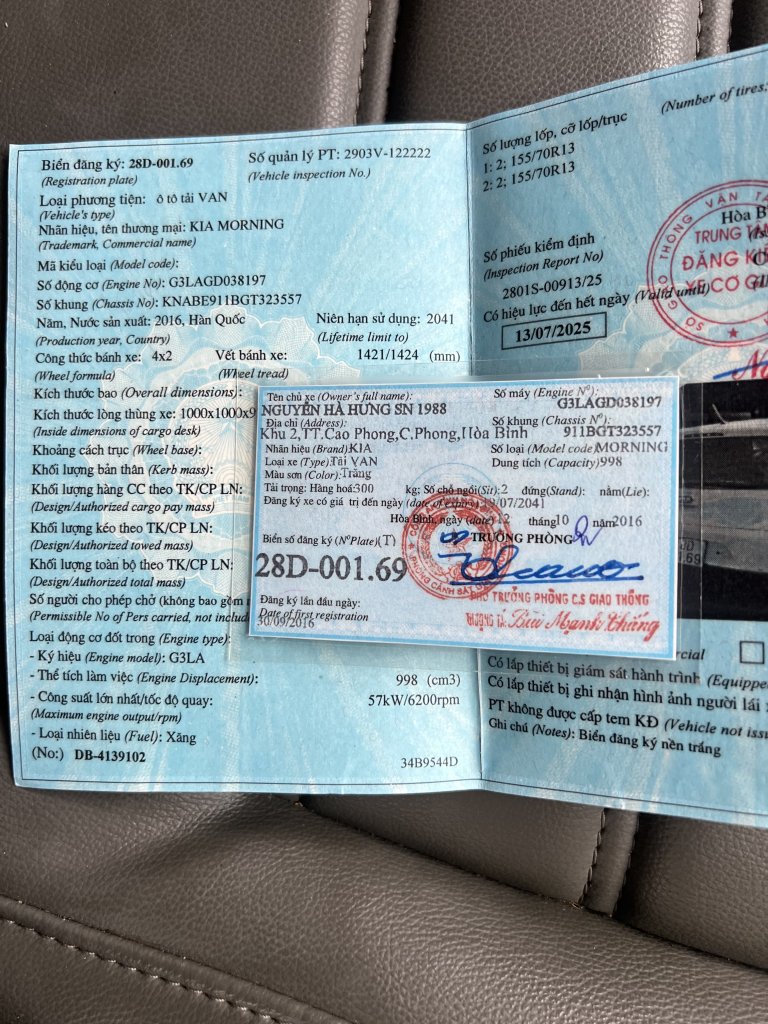 Biển đăng ký: 28D-001.69
(Registration plate)
Số quản lý PT: 2903V-122222
(Vehicle inspection No.)
Loại phương tiện: ô tô tải VAN
(Vehicle's type)
Nhãn hiệu, tên thương mại: KIA MORNING
(Trademark, Commercial name)
Mã kiểu loại (Model code):
Số động cơ (Engine No): G3LAGD038197
Số khung (Chassis No): KNABE911BGT323557
Năm, Nước sản xuất: 2016, Hàn Quốc
(Production year, Country)
Niên hạn sử dụng: 2041
(Lifetime limit to)
Công thức bánh xe: 4x2
(Wheel formula)
Vết bánh xe: 1421/1424 (mm)
(Wheel tread)
Kích thước bao (Overall dimensions):
Kích thước lòng thùng xe: 1000x1000x9
(Inside dimensions of cargo desk)
Khoảng cách trục (Wheel base):
Khối lượng bản thân (Kerb mass):
Khối lượng hàng CC theo TK/CP LN:
(Design/Authorized cargo pay mass)
Khối lượng kéo theo TK/CP LN:
(Design/Authorized towed mass)
Khối lượng toàn bộ theo TK/CP LN:
(Design/Authorized total mass)
Số người cho phép chở (không bao gồm
(Permissible No of Pers carried, not includ
Loại động cơ đốt trong (Engine type):
- Ký hiệu (Engine model): G3LA
- Thể tích làm việc (Engine Displacement): 998 (cm3)
- Công suất lớn nhất/tốc độ quay: 57kW/6200rpm
(Maximum engine output/rpm)
- Loại nhiên liệu (Fuel): Xăng
(No:) DB-4139102
34B9544D
Số lượng lốp, cỡ lốp/trục
(Number of tires;
1: 2; 155/70R13
2: 2; 155/70R13
Số phiếu kiểm định
(Inspection Report No)
2801S-00913/25
Có hiệu lực đến hết ngày (Valid until)
13/07/2025
Hòa B
TRUNG TÂM
ĐĂNG KIỂ
XE CƠ GI
Tên chủ xe (Owner's full name):
NGUYỄN HÀ HƯNG SN 1988
Địa chỉ (Address):
Khu 2,TT.Cao Phong,C.Phong,Hòa Bình
Số máy (Engine Nº):
G3LAGD038197
Số khung (Chassis Nº):
911BGT323557
Nhãn hiệu (Brand) KIA
Số loại (Model code) MORNING
Loại xe (Type) Tải VAN
Dung tích (Capacity) 998
Màu sơn (Color): Trắng
Tải trọng: Hàng hoá: 300 kg: Số chỗ ngồi(Sit): 2 đứng(Stand): nằm(Lie):
Đăng ký xe có giá trị đến ngày (date of expiry) /07/2041
Hòa Bình, ngày (date) 12 tháng 10 năm 2016
Biển số đăng ký (NºPlate) (T)
28D-001.69
TRƯỞNG PHÒNG
PHÓ TRƯỞNG PHÒNG C.S GIAO THÔNG
THƯỢNG TÁ: Bùi Mạnh Thắng
Đăng ký lần đầu ngày:
Date of first registration
30/09/2016
cial
Có lắp thiết bị giám sát hành trình (Equippe
Có lắp thiết bị ghi nhận hình ảnh người lái
PT không được cấp tem KĐ (Vehicle not issu
Ghi chú (Notes): Biển đăng ký nền trắng